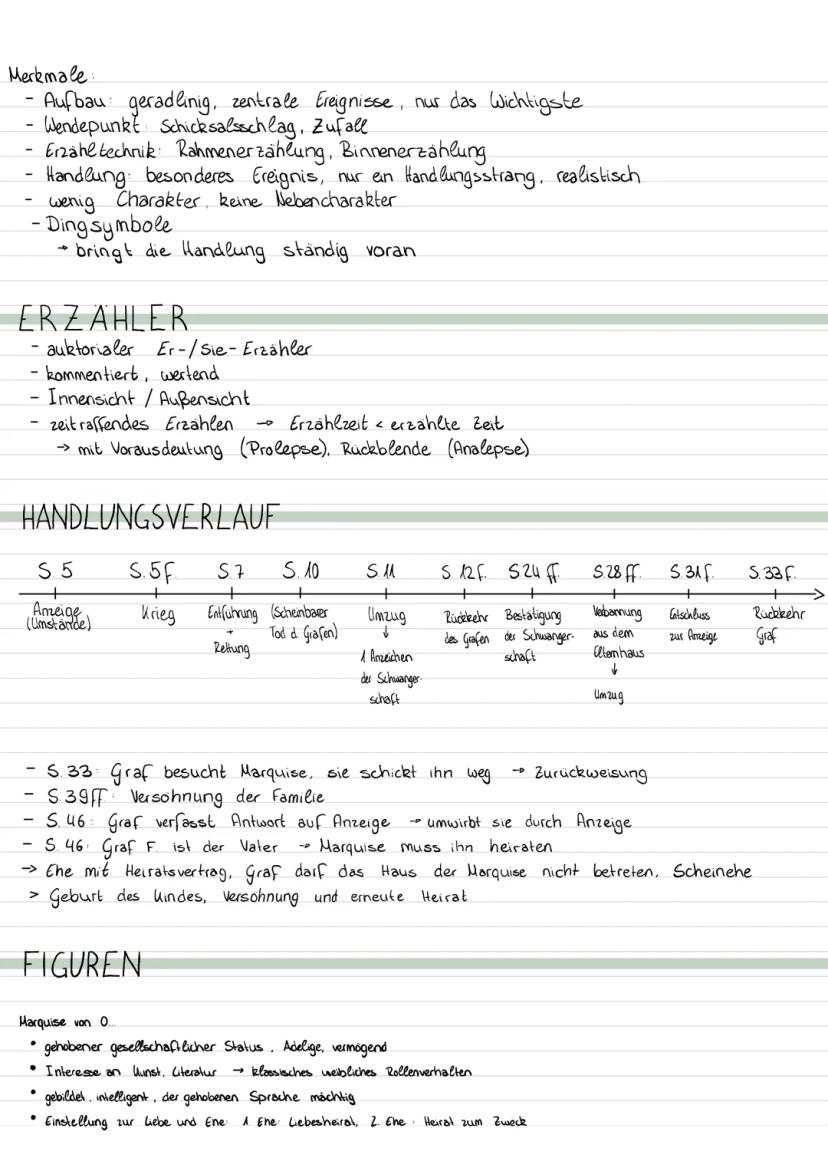 Merkmale:
- Aufbau: geradlinig, zentrale Ereignisse, nur das Wichtigste
- Wendepunkt: Schicksalsschlag, Zufall
- Erzähltechnik: Rahmenerzählung, Binnenerzählung
- Handlung: besonderes Ereignis, nur ein Handlungsstrang, realistisch
- wenig Charakter, keine Nebencharakter
- Dingsymbole
→ bringt die Handlung ständig voran
ERZÄHLER
- auktorialer Er-/Sie-Erzähler
- kommentiert, wertend
- Innensicht / Außensicht
- zeitraffendes Erzählen → Erzählzeit < erzählte Zeit
→ mit Vorausdeutung (Prolepse), Rückblende (Analepse)
HANDLUNGSVERLAUF
S. 5 S. 5f. S. 7 S. 10 S. 11 S. 12f. S. 24 ff. S. 28 ff. S. 31f. S. 33f.
Anzeige Krieg Entführung (Scheinbarer Umzug Rückkehr Bestätigung Verbannung Entschluss Rückkehr
(Umstände) + Tod d. Grafen) ↓ des Grafen der Schwanger- aus dem zur Anzeige Graf
Rettung 1 Anzeichen schaft Elternhaus
der Schwanger- ↓
schaft Umzug
- S. 33: Graf besucht Marquise, sie schickt ihn weg → Zurückweisung
- S. 39ff: Versöhnung der Familie
- S. 46: Graf verfasst Antwort auf Anzeige → umwirbt sie durch Anzeige
- S. 46: Graf F. ist der Vater → Marquise muss ihn heiraten
→ Ehe mit Heiratsvertrag, Graf darf das Haus der Marquise nicht betreten, Scheinehe
> Geburt des Kindes, Versöhnung und erneute Heirat
FIGUREN
Marquise von O...
• gehobener gesellschaftlicher Status, Adelige, vermögend
• Interesse an Kunst, Literatur → klassisches weibliches Rollenverhalten
• gebildet, intelligent, der gehobenen Sprache mächtig
• Einstellung zur Liebe und Ehe: 1. Ehe: Liebesheirat, 2. Ehe: Heirat zum Zweck